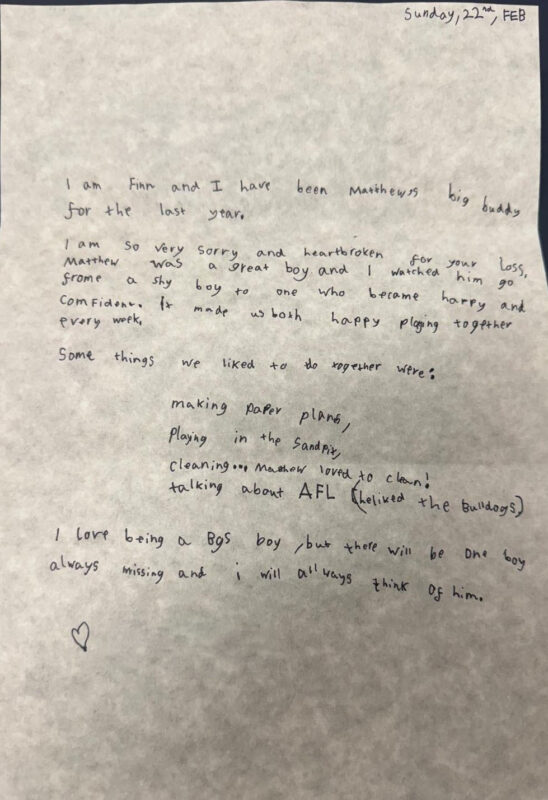 Sunday, 22nd, FEB
I am Finn and I have been Matthews big buddy
for the last year.
I am so very sorry and heartbroken for your loss,
Matthew was a great boy and I watched him go
frome a shy boy to one who became happy and
comfident. It made us both happy playing together
every week.
Some things we liked to do together were:
making paper plans,
Playing in the sandpit,
cleaning... Matthew loved to clean!
talking about AFL (he liked the Bulldogs)
I love being a BGS boy, but there will be one boy
always missing and i will allways think of him.
♡